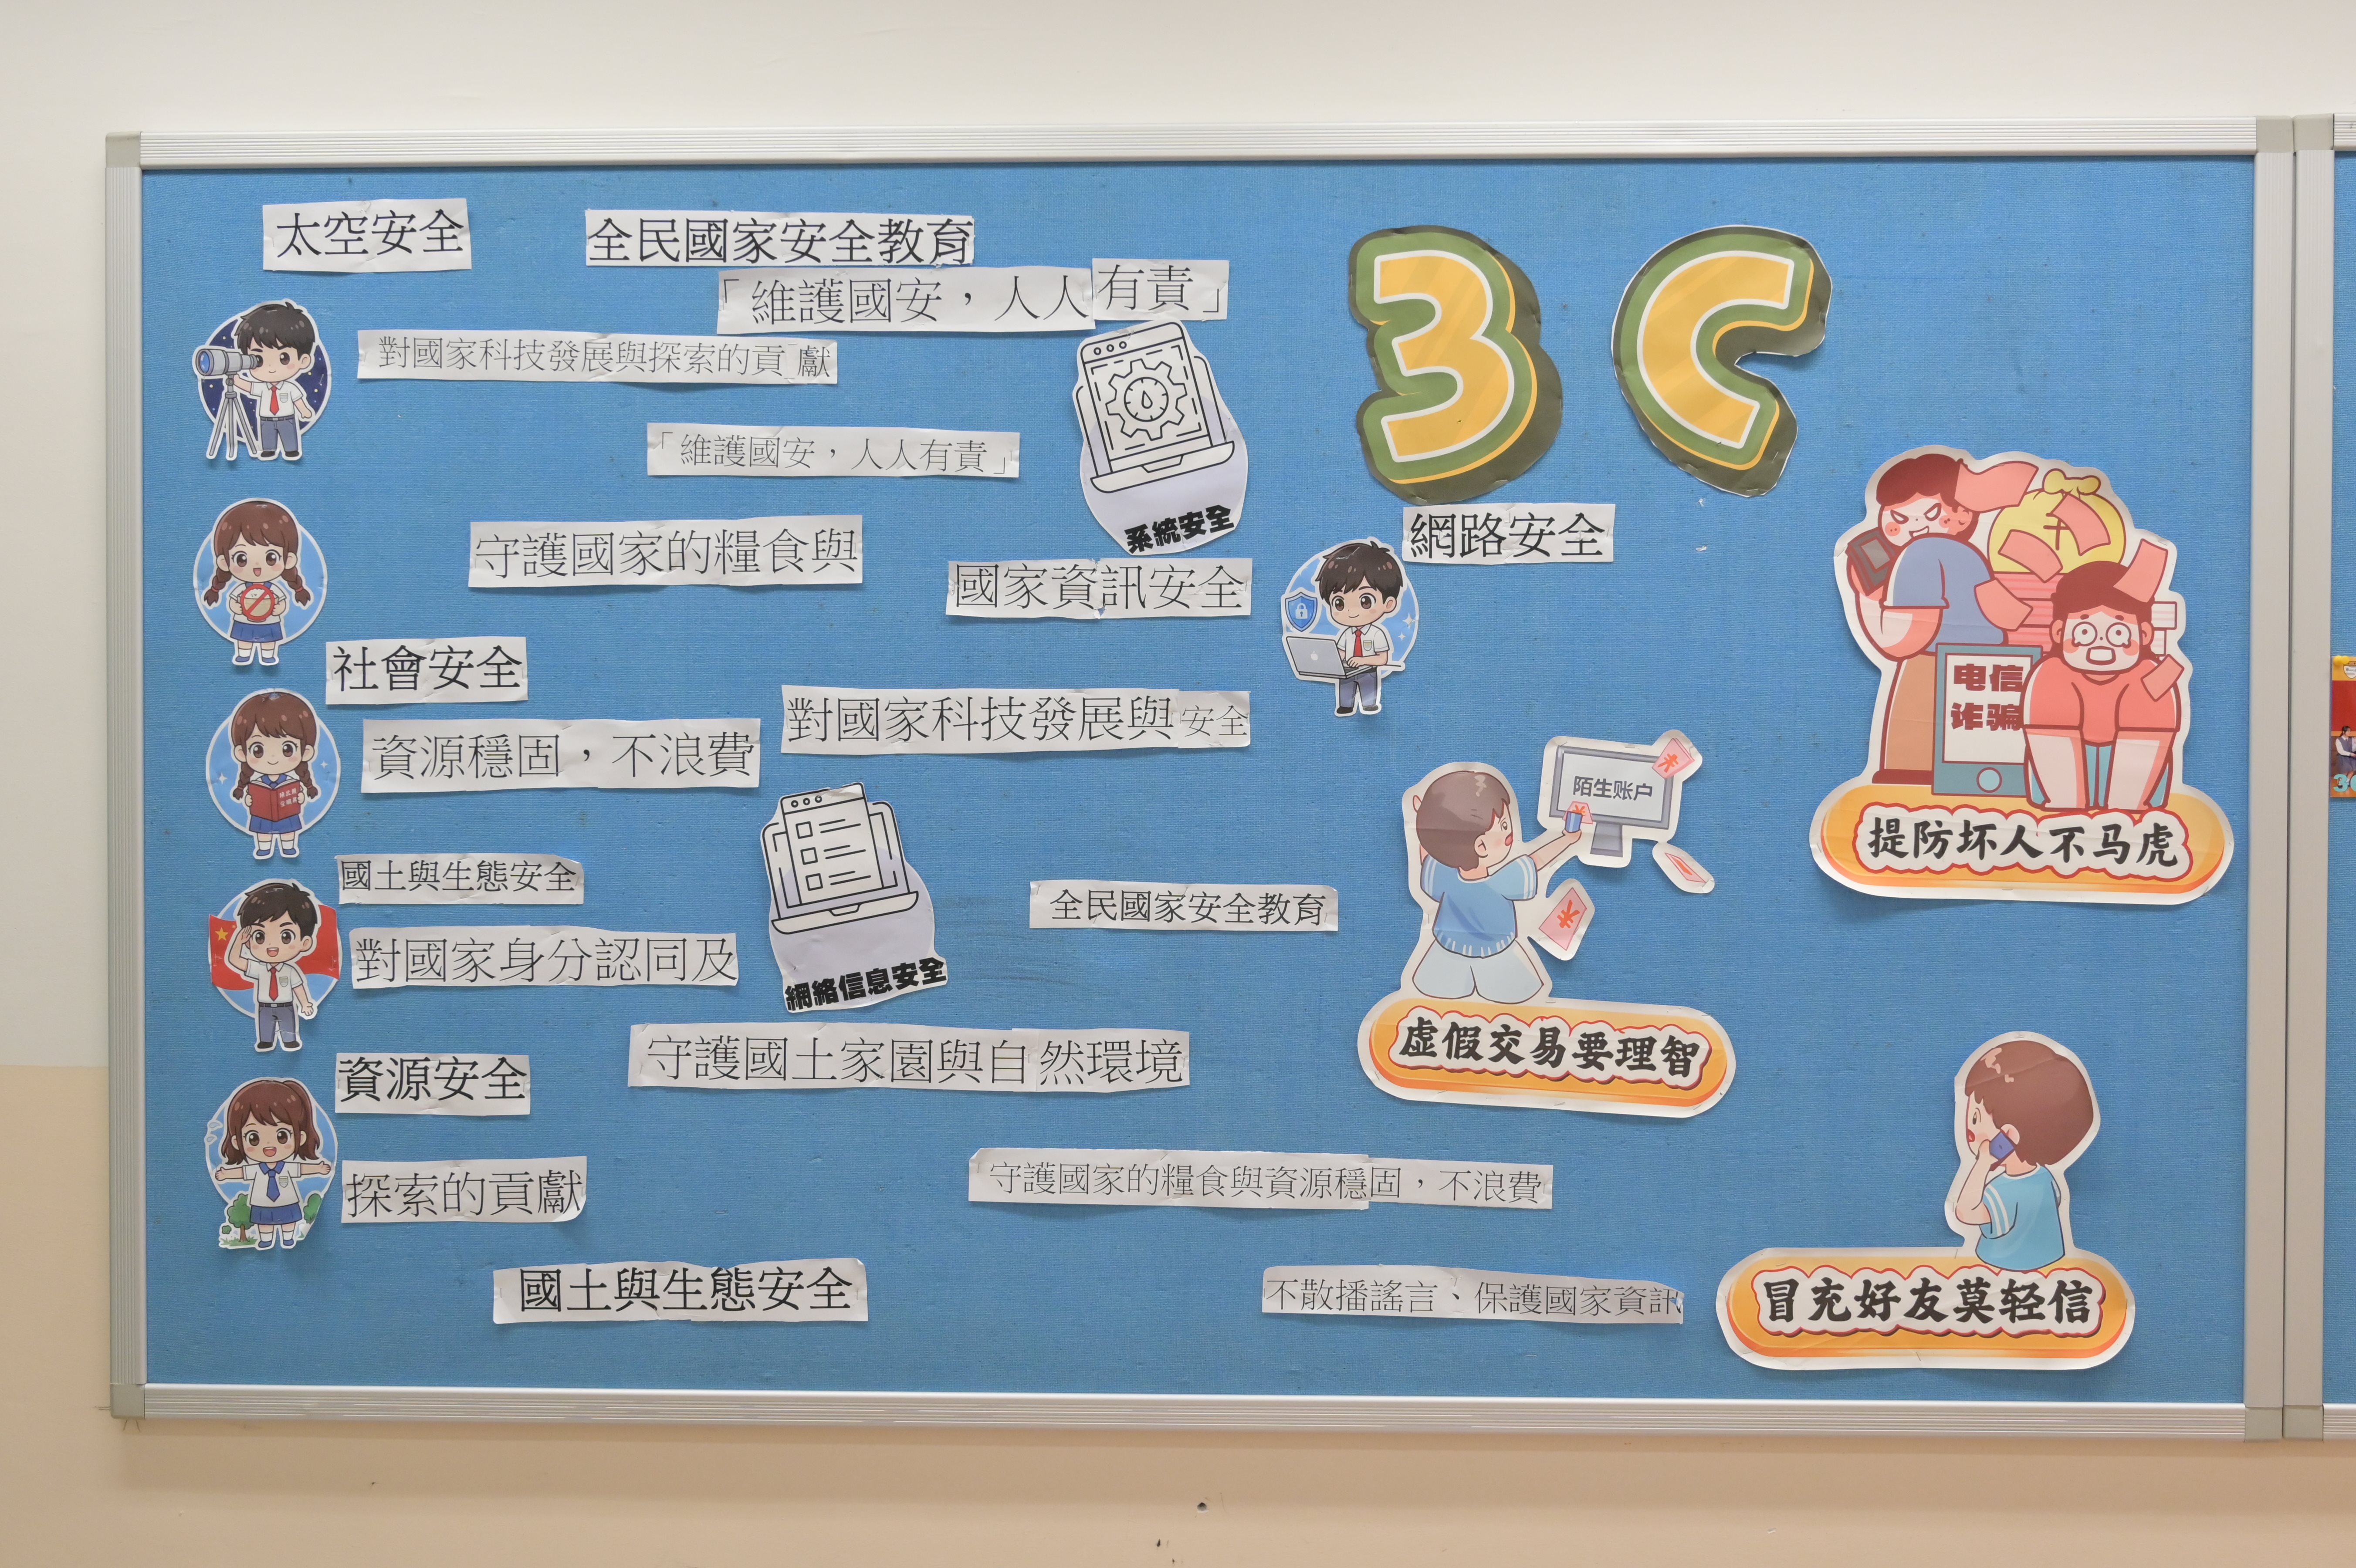 太空安全
全民國家安全教育
「維護國安，人人有責」
3C
對國家科技發展與探索的貢獻
「維護國安，人人有責」
系統安全
網路安全
守護國家的糧食與
國家資訊安全
社會安全
电信
诈骗
對國家科技發展與安全
資源穩固，不浪費
陌生账户
提防坏人不马虎
國土與生態安全
全民國家安全教育
對國家身分認同及
網絡信息安全
虚假交易要理智
守護國土家園與自然環境
資源安全
探索的貢獻
守護國家的糧食與資源穩固，不浪費
國土與生態安全
不散播謠言、保護國家資訊
冒充好友莫轻信